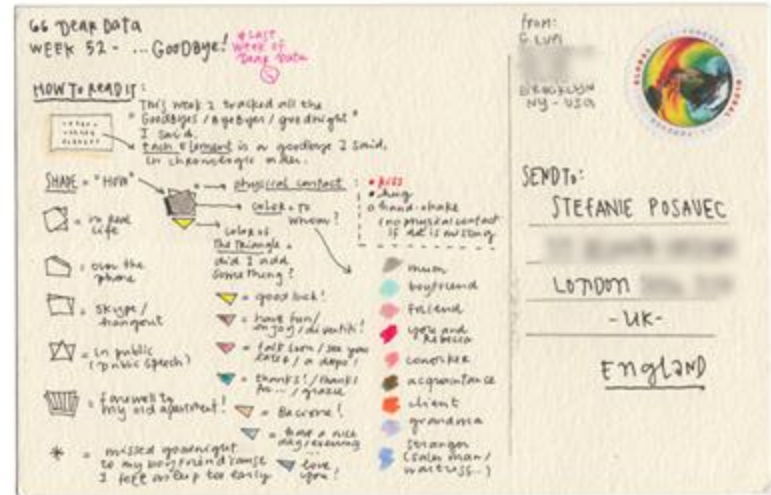 GG DEAR DATA
WEEK 52 - ... GOODBYE!
* LAST
WEEK OF
DEAR DATA
HOW TO READ IT:
This week I tracked all the
"Goodbyes / Byebyes / goodnight"
I said.
Each element is a goodbye I said,
in chronologic order.
SHAPE = "HOW"
= in real
life
= over the
phone
= Skype /
hangout
= in public
(public speech)
= farewell to
my old apartment!
* = missed goodnight
to my boyfriend cause
I fell asleep too early
physical contact :
• kiss
• hug
o hand-shake
(no physical contact
if dot is missing
color = to
whom?
color of
the triangle =
did I add
something?
= good luck!
= have fun /
enjoy / divertiti!
= talk soon / see you
later / a dopo!
= thanks! / thanks
... / grazie
= Bacione!
= have a nice
day / evening
...
= love
you!
mum
boyfriend
friend
you and
Rebecca
coworker
acquaintance
client
grandma
stranger
(sales man /
waitress..)
from:
G. LUPI
BROOKLYN
NY - USA
GLOBAL
FOREVER
SEND TO:
STEFANIE POSAVEC
LONDON
-UK-
ENGLAND